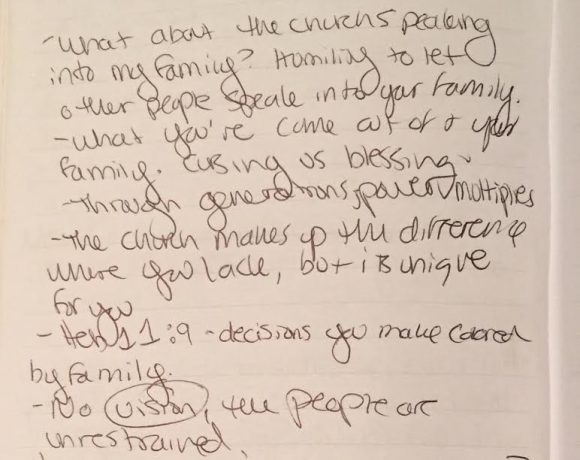 - What about the church speaking
into my family? Humility to let
other people speak into your family.
- What you've come out of
family. Cursing vs blessing.
- Through generations, power multiplies
- The church makes up the difference
where you lack, but is unique
for you
- Heb 11:9 - decisions you make
by family.
- No vision, the people are
unrestrained.